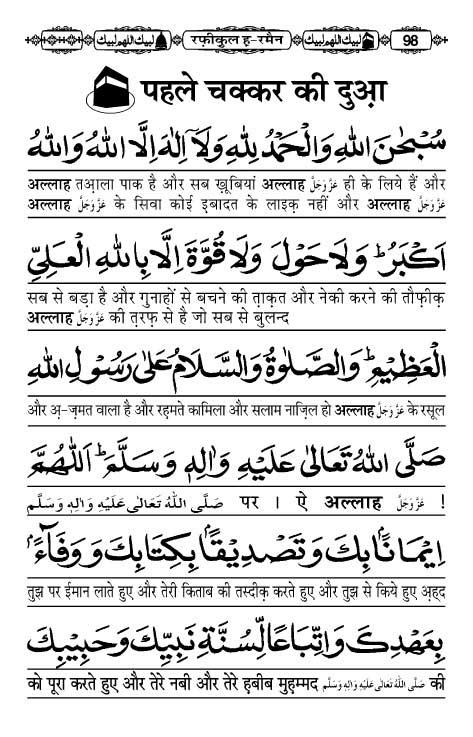 لبیك اللهم لبیك रफ़ीकुल ह-रमैन لبیك اللهم لبیك 98
पहले चक्कर की दुआ़
سُبْحٰنَ اللهِ وَالْحَمْدُ لِلّٰهِ وَلَآ اِلٰهَ اِلَّا اللهُ وَاللهُ
अल्लाह तआ़ला पाक है और सब ख़ूबियां अल्लाह عَزَّوَجَلَّ ही के लिये हैं और
अल्लाह عَزَّوَجَلَّ के सिवा कोई इ़बादत के लाइक़ नहीं और अल्लाह عَزَّوَجَلَّ
اَكْبَرُ ؕ وَلَا حَوْلَ وَلَا قُوَّةَ اِلَّا بِاللهِ الْعَلِيِّ
सब से बड़ा है और गुनाहों से बचने की त़ाक़त और नेकी करने की तौफ़ीक़
अल्लाह عَزَّوَجَلَّ की त़रफ़ से है जो सब से बुलन्द
الْعَظِيْمِ ؕ وَالصَّلٰوةُ وَالسَّلَامُ عَلٰى رَسُوْلِ اللهِ
और अ़-ज़मत वाला है और रह़मते कामिला और सलाम नाज़िल हो अल्लाह عَزَّوَجَلَّ के रसूल
صَلَّى اللهُ تَعَالٰى عَلَيْهِ وَاٰلِهٖ وَسَلَّمَ ؕ اَللّٰهُمَّ
صَلَّى اللهُ تَعَالٰى عَلَيْهِ وَاٰلِهٖ وَسَلَّم पर । ऐ अल्लाह عَزَّوَجَلَّ !
اِيْمَانًا ۢ بِكَ وَتَصْدِيْقًا ۢ بِكِتَابِكَ وَوَفَآءً ۢ
तुझ पर ईमान लाते हुए और तेरी किताब की तस्दीक़ करते हुए और तुझ से किये हुए अ़हद
بِعَهْدِكَ وَاتِّبَاعًا لِّسُنَّةِ نَبِيِّكَ وَحَبِيْبِكَ
को पूरा करते हुए और तेरे नबी और तेरे ह़बीब मुह़म्मद صَلَّى اللهُ تَعَالٰى عَلَيْهِ وَاٰلِهٖ وَسَلَّم की